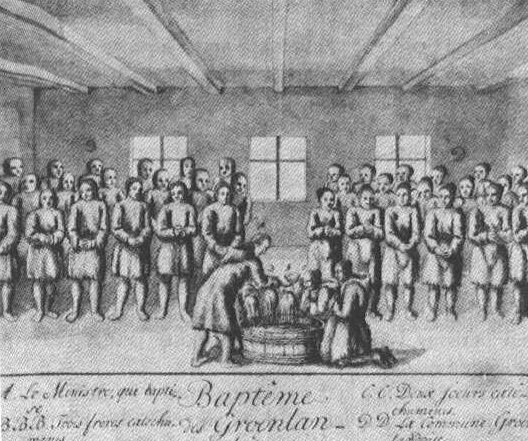 A. Le Ministre, qui bapti-
se
B.B.B. Trois freres catechu-
menes
Baptême
des Groenlan-
C.C. Deux soeurs cate-
chumenes.
D D La Commune, Groe